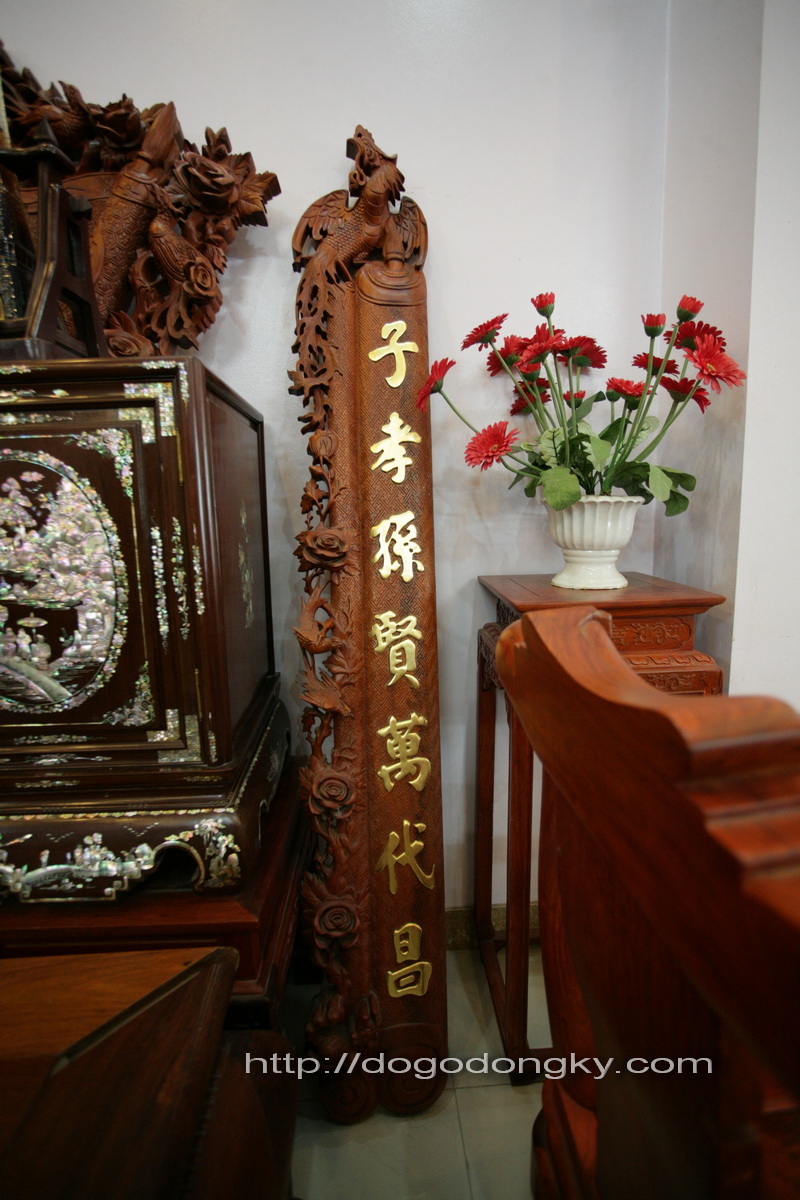 子孝孫賢萬代昌
http://dogodongky.com